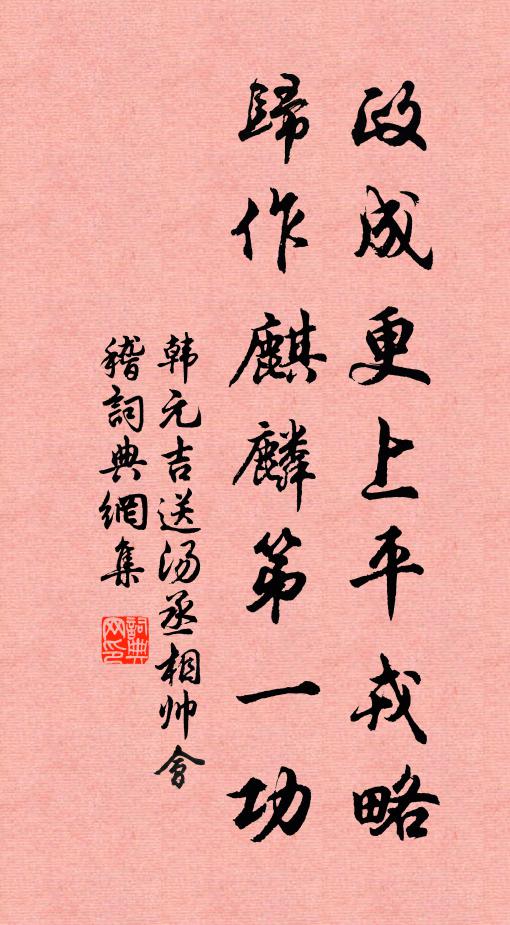 政成更上平戎略
歸作麒麟第一功
韩元吉送汤丞相帅會
稽詞典網集
詞典网印